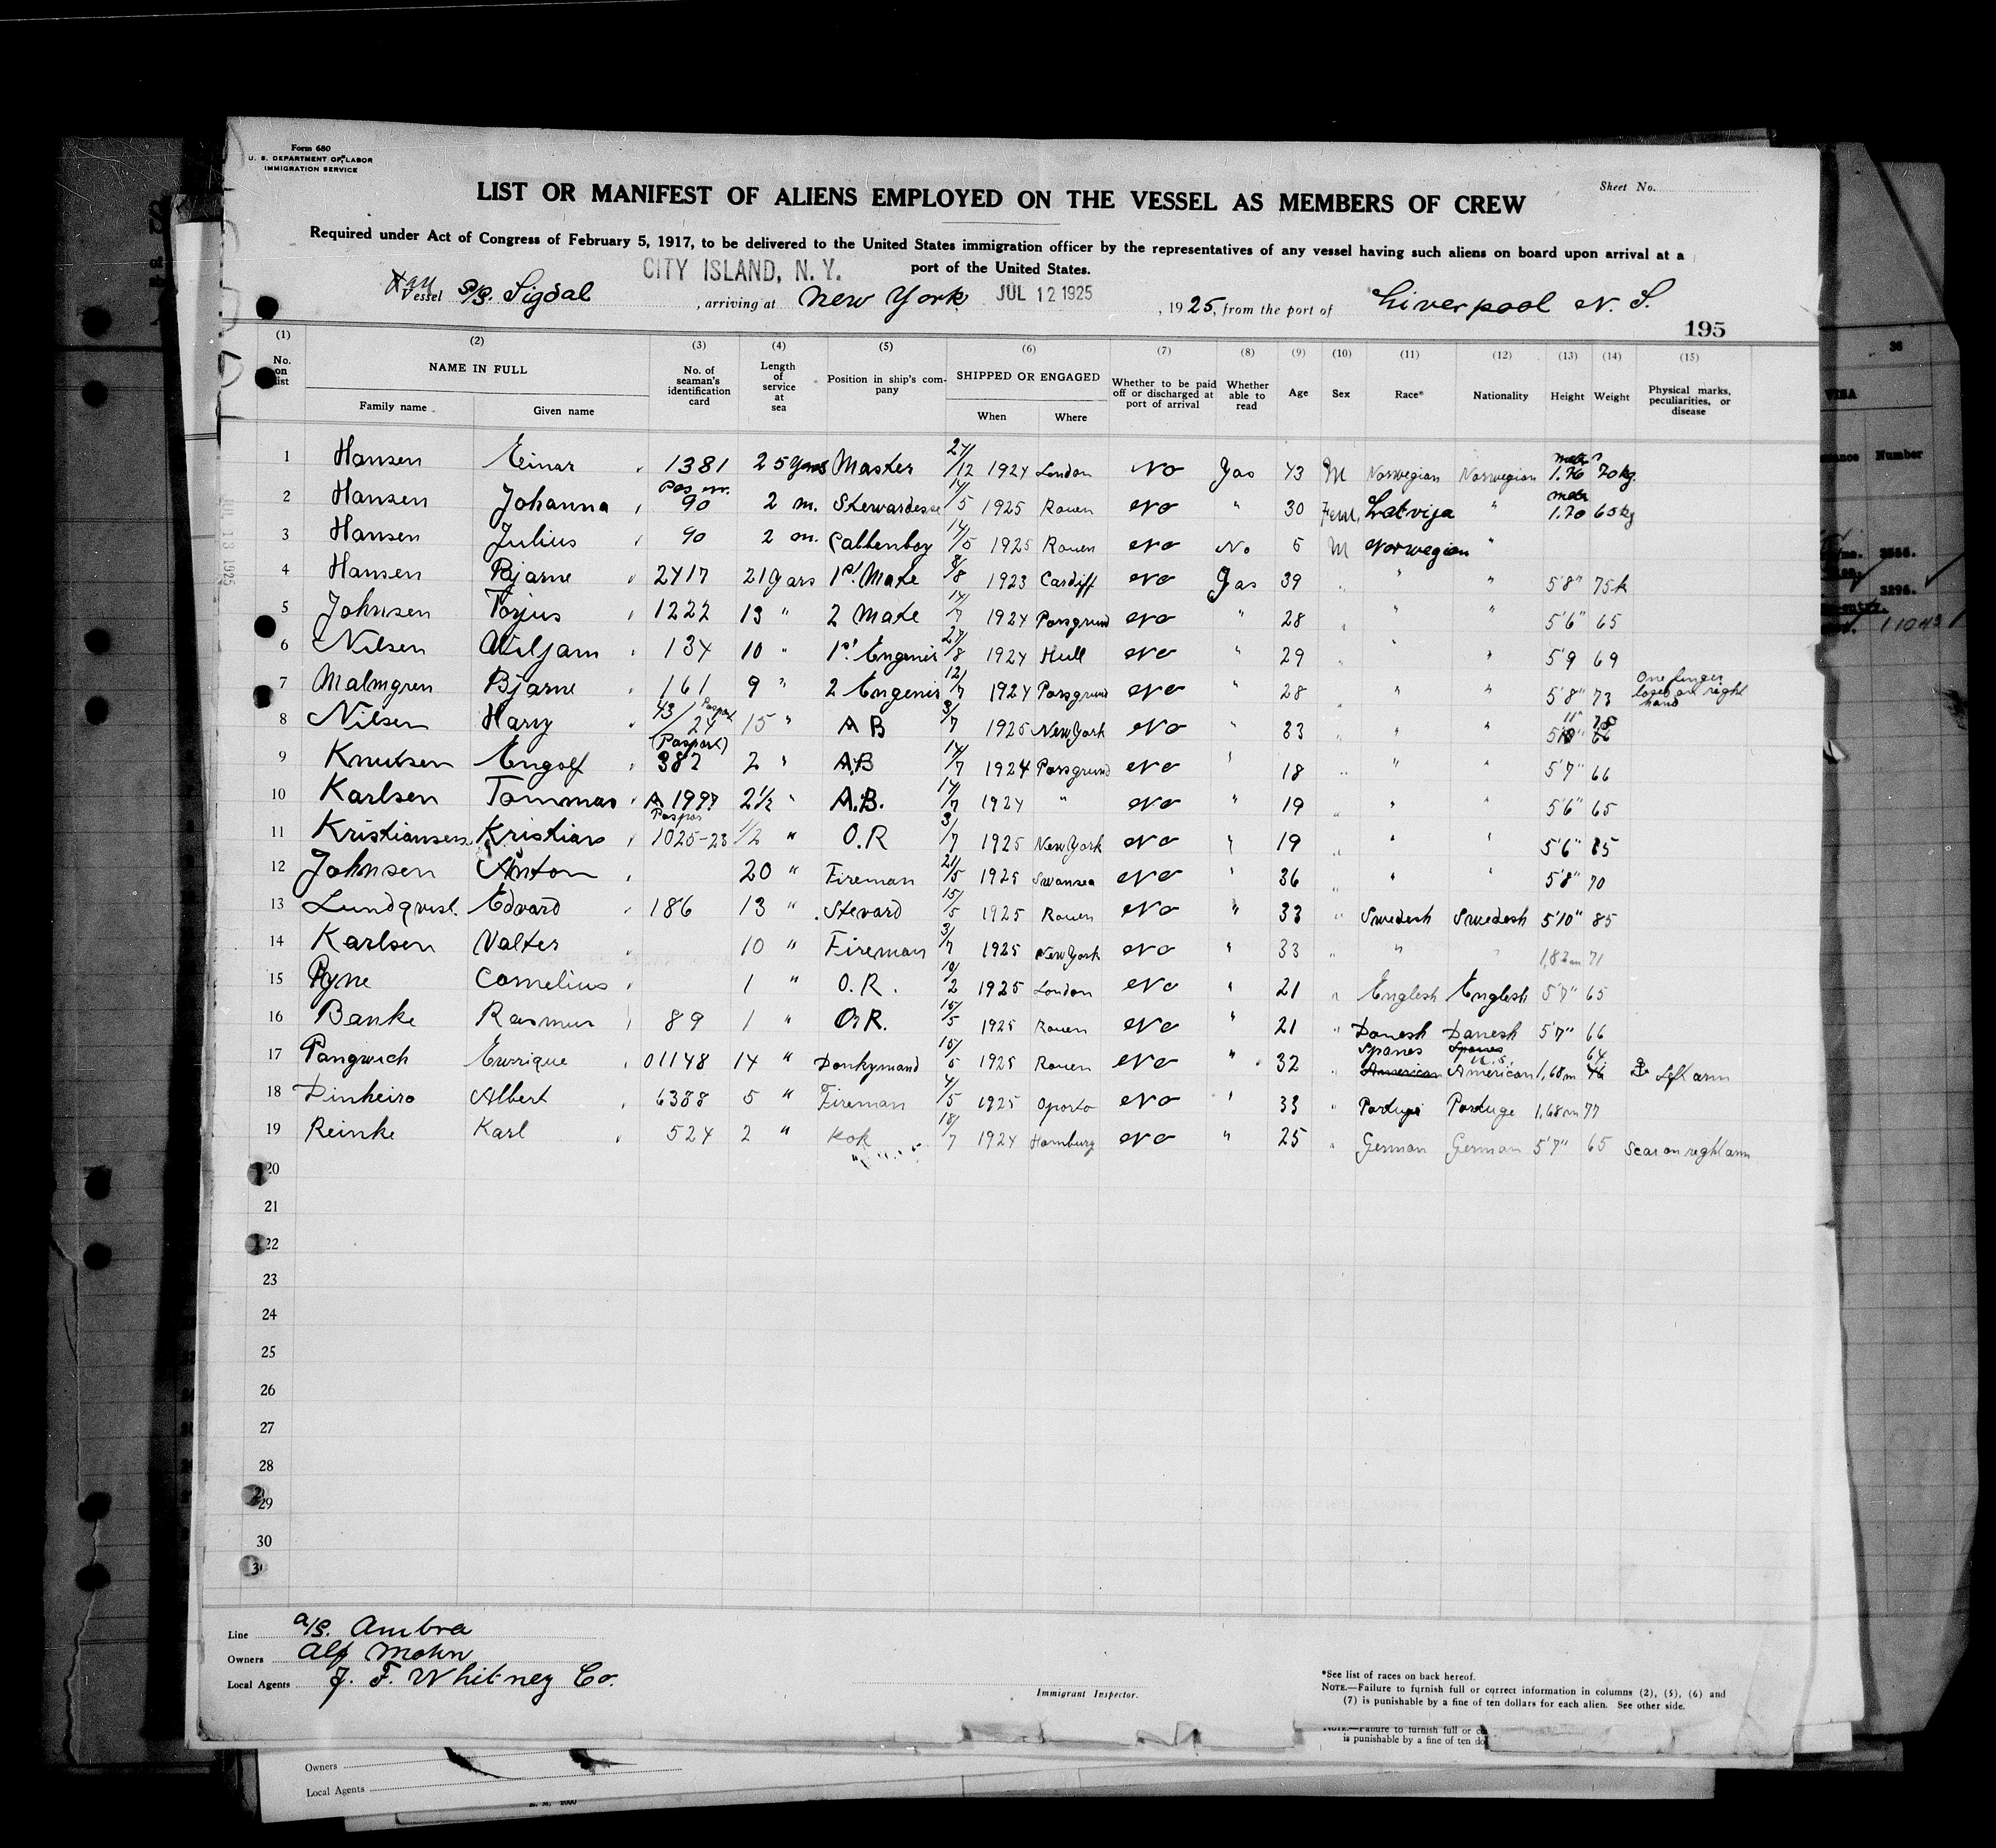 Form 680
U. S. DEPARTMENT OF LABOR
IMMIGRATION SERVICE
Sheet No.
LIST OR MANIFEST OF ALIENS EMPLOYED ON THE VESSEL AS MEMBERS OF CREW
Required under Act of Congress of February 5, 1917, to be delivered to the United States immigration officer by the representatives of any vessel having such aliens on board upon arrival at a
port of the United States.
CITY ISLAND, N. Y.
Vessel S/S. Sigdal , arriving at New York JUL 12 1925 , 1925, from the port of Liverpool N. S.
195
(1) (2) (3) (4) (5) (6) (7) (8) (9) (10) (11) (12) (13) (14) (15)
No. on list NAME IN FULL Family name Given name No. of seaman's identification card Length of service at sea Position in ship's company SHIPPED OR ENGAGED When Where Whether to be paid off or discharged at port of arrival Whether able to read Age Sex Race* Nationality Height Weight Physical marks, peculiarities, or disease
1 Hansen Einar 1381 25 years Master 24/12 1924 London No Yas 43 M Norwegian Norwegian 1.76 70 kg.
2 Hansen Johanna Pas nr. 90 2 m. Stewardesse 14/5 1925 Rouen No " 30 Fem. Latvija " 1.70 65 kg
3 Hansen Julius 90 2 m. Cabbenboy 14/5 1925 Rouen No No 5 M Norwegian "
4 Hansen Bjarne 2417 21 Yars 1st Mate 8/8 1923 Cardiff No Yas 39 " " " 5'8" 75 k
5 Johnsen Torjus 1222 13 " 2 Mate 14/7 1924 Porsgrund No " 28 " " " 5'6" 65
6 Nilsen Wiljam 134 10 " 1st Engenir 27/8 1924 Hull No " 29 " " " 5'9 69
7 Malmgren Bjarne 161 9 " 2 Engenir 12/7 1924 Porsgrund No " 28 " " " 5'8" 73 One finger right hand
8 Nilsen Harry 43/24 Paspor 15 " AB 3/7 1925 New York No " 33 " " "
9 Knutsen Engolf (Pasport) 382 2 " AB 14/7 1924 Porsgrund No " 18 " " " 5'7" 66
10 Karlsen Tommas A 1997 2½ " A.B. 14/7 1924 " No " 19 " " " 5'6" 65
11 Kristiansen Kristian Paspor 1025-23 1/2 " O.R 3/7 1925 New York No " 19 " " " 5'6"
12 Johnsen Anton 20 " Fireman 21/5 1925 Swansea No " 36 " " " 5'8" 70
13 Lundqvist. Edvard 186 13 " Stevard 15/5 1925 Rouen No " 33 " Swedesh Swedesh 5'10" 85
14 Karlsen Valter 10 " Fireman 3/7 1925 New York No " 33 " " " 71
15 Pyne Cornelius 1 " O.R. 10/2 1925 London No " 21 " Englesh Englesh 5'7" 65
16 Banke Rasmus 89 1 " O.R. 15/5 1925 Rouen No " 21 " Danesh Danesh 5'7" 66
17 Pangwich Enrrique 01148 14 " Donkymand 15/5 1925 Rouen No " 32 " Spanes American U.S. American 1,68 m 64 Left arm
18 Pinheiro Albert 6388 5 " Fireman 4/5 1925 Oporto No " 33 " Portuge 1,68 m 77
19 Reinke Karl 524 2 " Kok 18/7 1924 Hamburg No " 25 " German German 5'7" 65 Scar on reght arm
20
21
22
23
24
25
26
27
28
29
30
Line A/S. Ambra
Owners Alf Mohn
Local Agents J. F. Whitney Co.
Immigrant Inspector.
*See list of races on back hereof.
NOTE.—Failure to furnish full or correct information in columns (2), (5), (6) and
(7) is punishable by a fine of ten dollars for each alien. See other side.
NOTE.—Failure to furnish full or
is punishable by a fine of ten
Owners
Local Agents
Number
36
JUL 13 1925